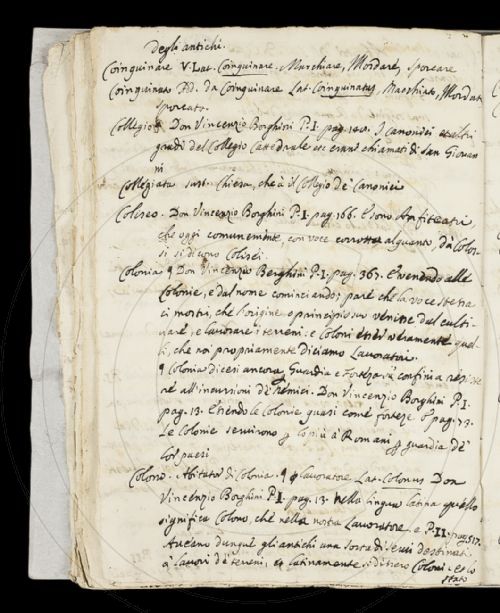 degli antichi.
Coinquinare V. Lat. Coinquinare. Macchiare, Mordare, sporcare
Coinquinato Ad. da Coinquinare Lat. Coinquinatus, Macchiato, Mordat
sporcato.
Collegio § Don Vincenzio Borghini P. I. pag. 440. I canonici e
gradi del Collegio Cattedrale ecc. erano chiamati di San Giovan
ni
Collegiata sust. Chiesa, che à il Collegio de' Canonici
Coliseo. Don Vincenzio Borghini P. I. pag. 166. E sono Anfiteatri
che oggi comunemente, con voce corrotta alquanto, da Colos-
si si dicono Colisei.
Colonia § Don Vincenzio Borghini P. I. pag. 367. E venendo alle
Colonie, e dal nome cominciando; pare che la voce stessa
ci mostri, che l'origine e principio suo venisse dal culti-
vare, e lavorare i terreni: e Coloni esser veramente quel-
li, che noi propriamente diciamo Lavoratori.
§ Colonia dicesi ancora Guardia e fortezza, a' confini a resiste
re all'incursioni de' Nemici. Don Vincenzio Borghini P. I.
pag. 13. Essendo le Colonie quasi come fortezze e pag. 73.
Le Colonie servirono p lo più a' Romani p guardia de'
lor paesi
Colono. Abitator di Colonia. § p lavoratore Lat. Colonus Don
Vincenzio Borghini P. I. pag. 13. nella lingua latina quello
significa Colono, che nella nostra Lavoratore. e P. II. pag. 517.
Aveano dunque gli antichi una sorta di servi destinati
a' lavori de' terreni, e latinamente si dissero Coloni. et lo
stato